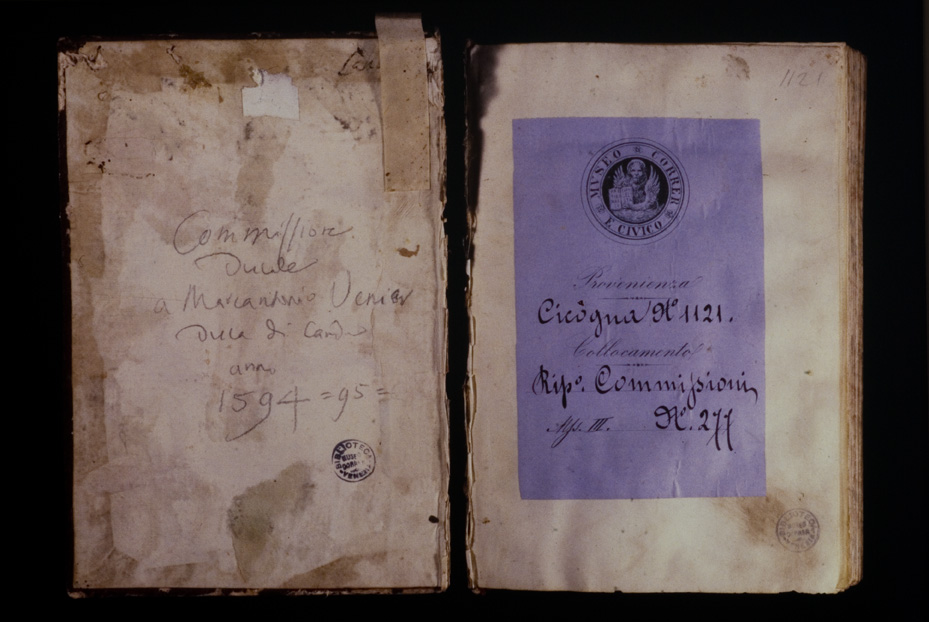 Commissione
Ducale
a Marcantonio Venier
Duca di Candia
anno
1594 =95=
BIBLIOTECA
MUSEO
CORRER
VENEZIA
1121
MVSEO CORRER
E CIVICO
Provenienza
Cicôgna Nº 1121.
Collocamento
Ripº. Commissioni
Mss. III. Nº. 277